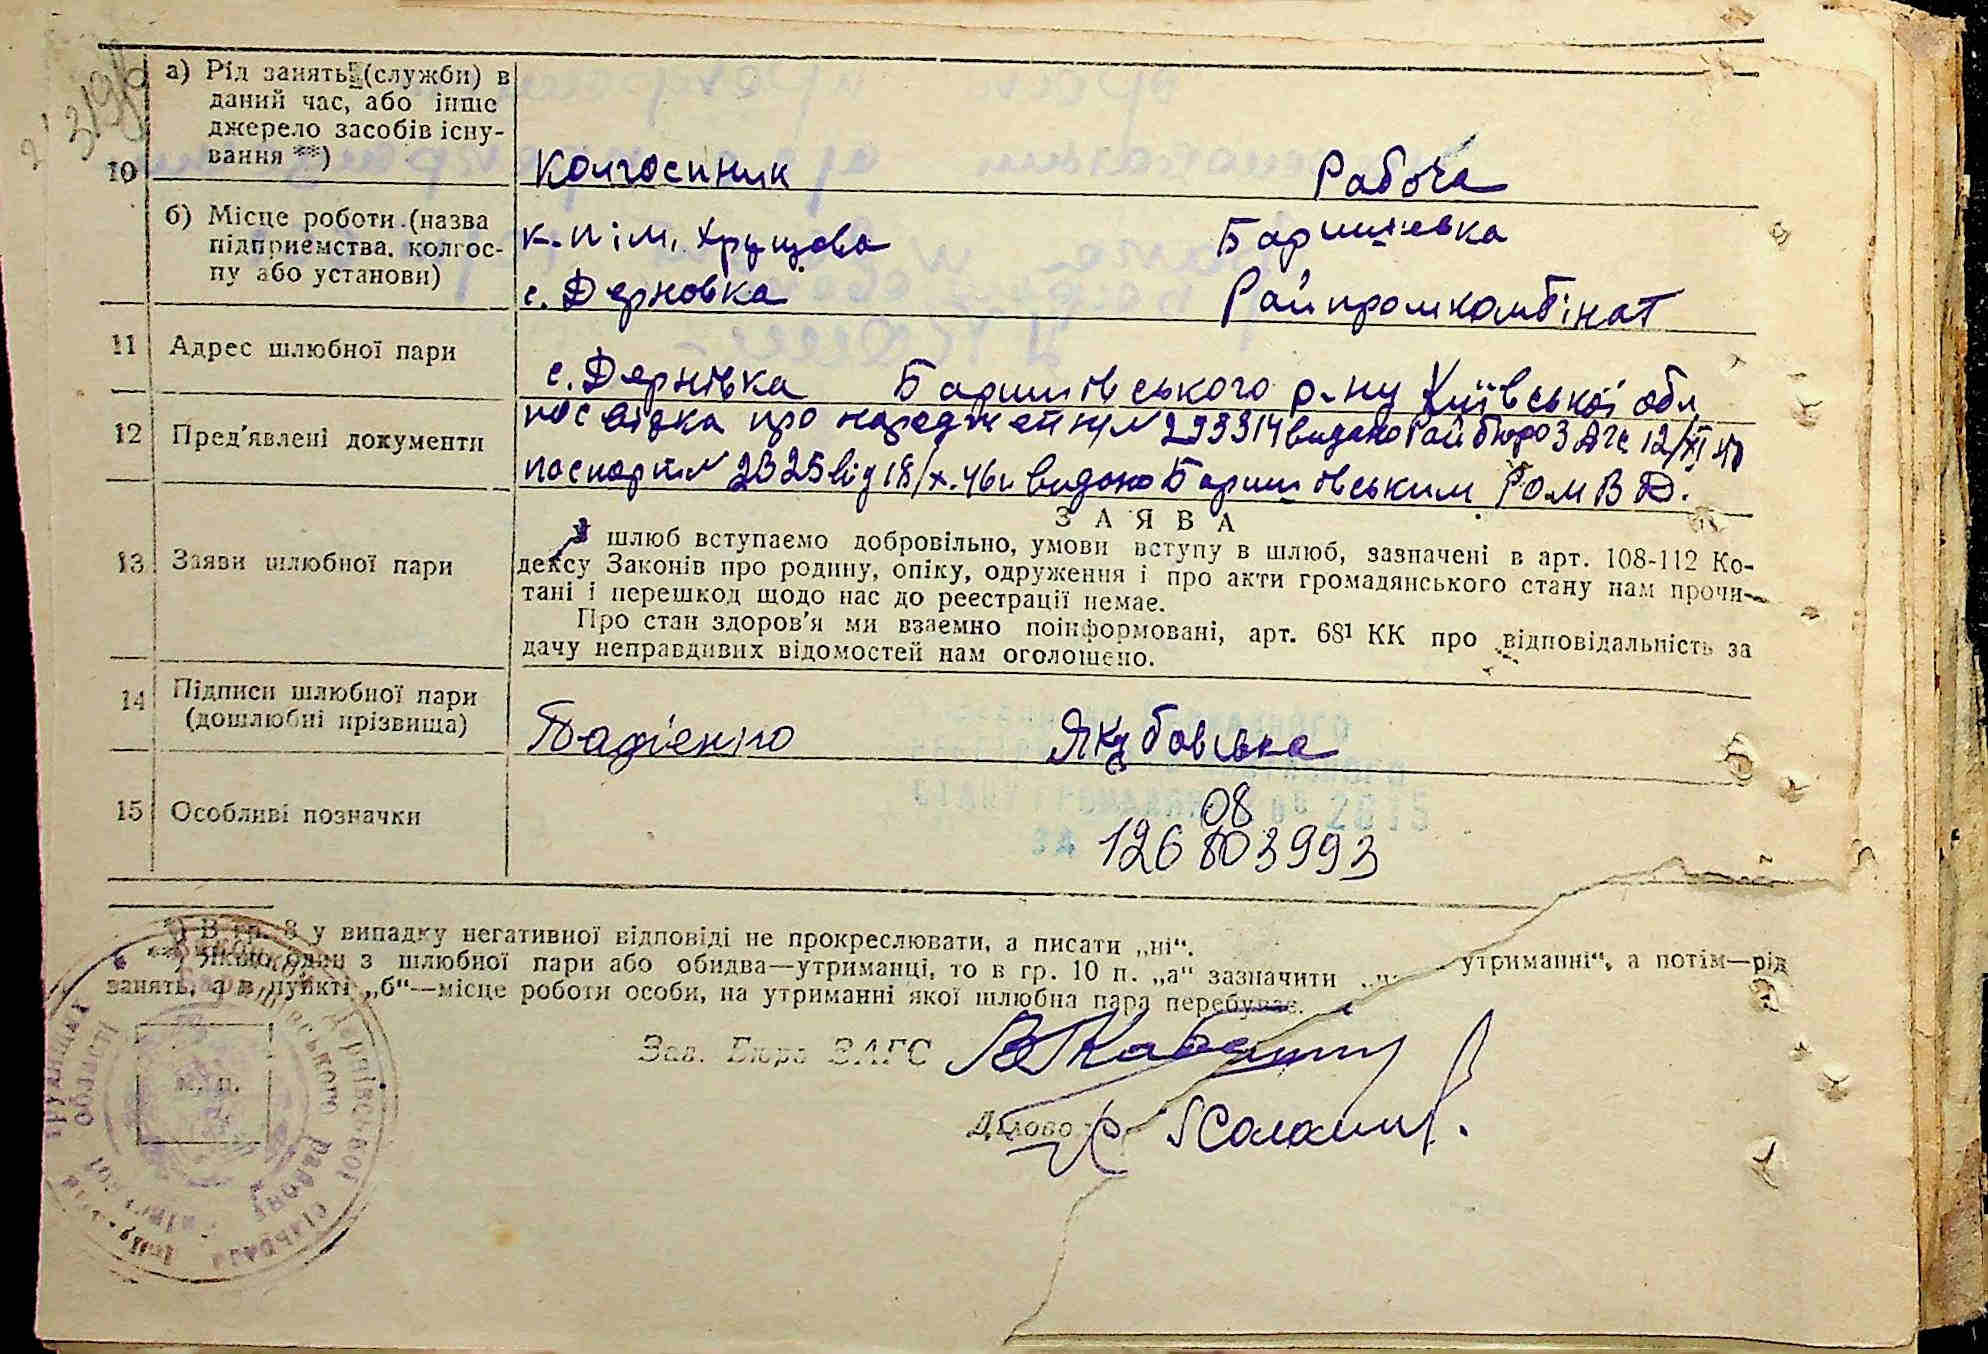 10
а) Рід занять (служби) в
даний час, або інше
джерело засобів існу-
вання **)
Колгоспник Рабоча
б) Місце роботи (назва
підприємства, колгос-
пу або установи)
к-п ім. Хрущова Баришевка
с. Дерновка Райпромкомбінат
11 Адрес шлюбної пари
с. Дернівка Баришівського р-ну Київської обл
12 Пред'явлені документи
посвідка про народження № 293314 видано Райбюро ЗАГС 12/XI
паспорт № 2325 від 18/X.46 р видано Баришівським РОМВД.
13 Заяви шлюбної пари
ЗАЯВА
В шлюб вступаємо добровільно, умови вступу в шлюб, зазначені в арт. 108-112 Ко-
дексу Законів про родину, опіку, одруження і про акти громадянського стану нам прочи-
тані і перешкод щодо нас до реєстрації немає.
Про стан здоров'я ми взаємно поінформовані, арт. 68¹ КК про відповідальність за
дачу неправдивих відомостей нам оголошено.
14 Підписи шлюбної пари
(дошлюбні прізвища)
Якубовська
15 Особливі позначки
08
126 803993
*) В гр. 8 у випадку негативної відповіді не прокреслювати, а писати „ні“.
**) Якщо один з шлюбної пари або обидва—утриманці, то в гр. 10 п. „а“ зазначити утриманні“, а потім—рід
занять, а в пункті „б“—місце роботи особи, на утриманні якої шлюбна пара перебуває.
Зав. Бюро ЗАГС
м. п.
Діловод